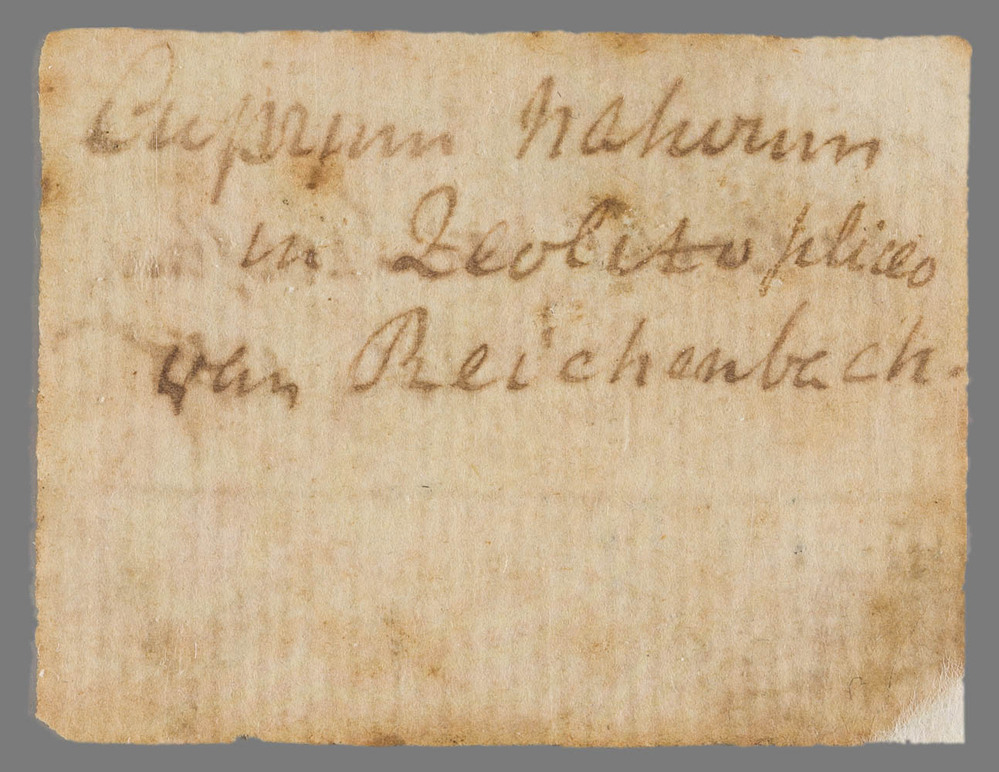 Cuprum nativum
in Zeolito pliceo
van Reichenbach.